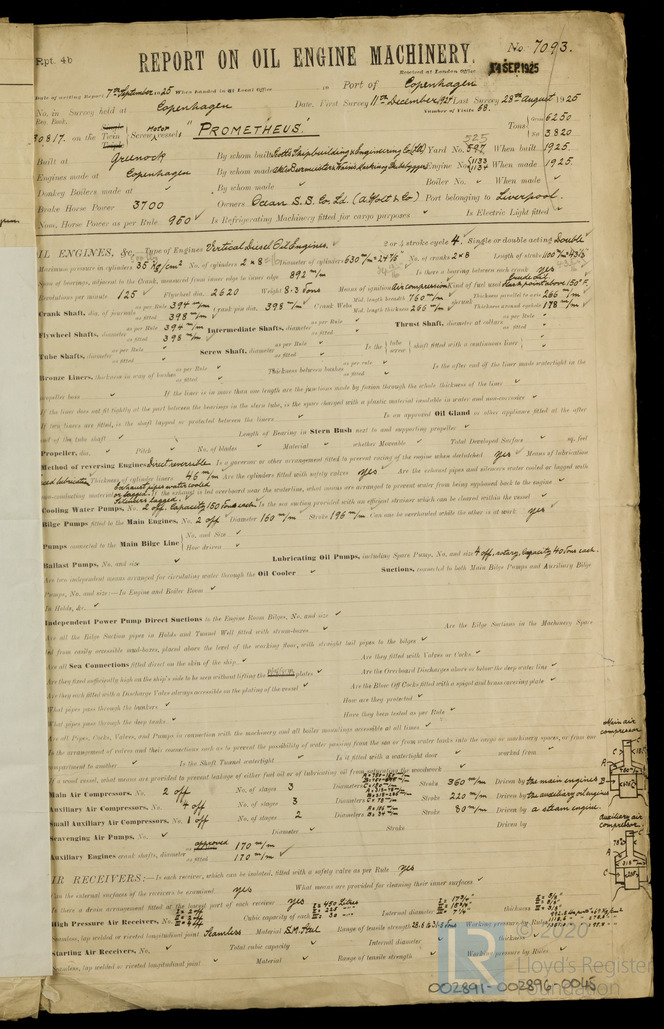 Rpt. 4b
REPORT ON OIL ENGINE MACHINERY.
No. 7093.
Received at London Office 14 SEP. 1925
Date of writing Report 7th September 1925 When handed in at Local Office
Port of Copenhagen
No. in Survey held at Copenhagen Date, First Survey 11th December 1924 Last Survey 28th August 1925
Reg. Book. Number of Visits 68.
30817. on the Single Twin Triple Screw Motor vessel "PROMETHEUS." Tons Gross 6250
Net 3820
Built at Greenock By whom built Yard No. 597 525 When built 1925.
Engines made at Copenhagen By whom made Engine No. 1133 1134 When made 1925.
Donkey Boilers made at ✓ By whom made ✓ Boiler No. ✓ When made ✓
Brake Horse Power 3700 Owners Ocean S.S. Co. Ltd. (A. Holt & Co) Port belonging to Liverpool.
Nom. Horse Power as per Rule 960 ✓ Is Refrigerating Machinery fitted for cargo purposes ✓ Is Electric Light fitted ✓
OIL ENGINES, &c.—Type of Engines Vertical Diesel Oil Engines. 2 or 4 stroke cycle 4. Single or double acting Double
Maximum pressure in cylinders 35 kg/cm² No. of cylinders 2 × 8 Diameter of cylinders 630 m/m No. of cranks 2×8 Length of stroke 1100 m/m
Span of bearings, adjacent to the Crank, measured from inner edge to inner edge 892 m/m Is there a bearing between each crank yes
Revolutions per minute 125 ✓ Flywheel dia. 2620 Weight 8.3 Tons Means of ignition Air compression Kind of fuel used Crude Oil, flash point above 150° F.
Crank Shaft, dia. of journals as per Rule 394 m/m as fitted 398 m/m Crank pin dia. 398 m/m Crank Webs Mid. length breadth 760 m/m Mid. length thickness 266 m/m Thickness parallel to axis 266 m/m Thickness around eyehole 178 m/m
Flywheel Shafts, diameter as per Rule 394 m/m as fitted 398 m/m Intermediate Shafts, diameter as per Rule as fitted Thrust Shaft, diameter at collars as per Rule as fitted
Tube Shafts, diameter as per Rule as fitted Screw Shaft, diameter as per Rule as fitted Is the tube screw shaft fitted with a continuous liner
Bronze Liners, thickness in way of bushes as per Rule as fitted Thickness between bushes as per rule as fitted Is the after end of the liner made watertight in the
propeller boss ✓ If the liner is in more than one length are the junctions made by fusion through the whole thickness of the liner ✓
If the liner does not fit tightly at the part between the bearings in the stern tube, is the space charged with a plastic material insoluble in water and non-corrosive ✓
If two liners are fitted, is the shaft lapped or protected between the liners ✓ Is an approved Oil Gland or other appliance fitted at the after
end of the tube shaft ✓ Length of Bearing in Stern Bush next to and supporting propeller ✓
Propeller, dia. ✓ Pitch ✓ No. of blades ✓ Material ✓ whether Moveable ✓ Total Developed Surface ✓ sq. feet
Method of reversing Engines Direct reversible Is a governor or other arrangement fitted to prevent racing of the engine when declutched yes ✓ Means of lubrication
Thickness of cylinder liners 46 m/m Are the cylinders fitted with safety valves yes ✓ Are the exhaust pipes and silencers water cooled or lagged with
non-conducting material Exhaust pipes water cooled or lagged. Silencers lagged. If the exhaust is led overboard near the waterline, what means are arranged to prevent water from being syphoned back to the engine ✓
Cooling Water Pumps, No. 2 off. Capacity 150 Tons each. Is the sea suction provided with an efficient strainer which can be cleared within the vessel ✓
Bilge Pumps fitted to the Main Engines, No. 2 off ✓ Diameter 160 m/m Stroke 196 m/m Can one be overhauled while the other is at work yes ✓
Pumps connected to the Main Bilge Line No. and Size ✓
How driven ✓
Ballast Pumps, No. and size ✓ Lubricating Oil Pumps, including Spare Pump, No. and size 4 off, rotary, Capacity 40 Tons each.
Are two independent means arranged for circulating water through the Oil Cooler ✓ Suctions, connected to both Main Bilge Pumps and Auxiliary Bilge
Pumps, No. and size:—In Engine and Boiler Room ✓
In Holds, &c. ✓
Independent Power Pump Direct Suctions to the Engine Room Bilges, No. and size ✓
Are all the Bilge Suction pipes in Holds and Tunnel Well fitted with strum-boxes ✓ Are the Bilge Suctions in the Machinery Space
led from easily accessible mud-boxes, placed above the level of the working floor, with straight tail pipes to the bilges ✓
Are all Sea Connections fitted direct on the skin of the ship ✓ Are they fitted with Valves or Cocks ✓
Are they fixed sufficiently high on the ship's side to be seen without lifting the platform plates ✓ Are the Overboard Discharges above or below the deep water line ✓
Are they each fitted with a Discharge Valve always accessible on the plating of the vessel ✓ Are the Blow Off Cocks fitted with a spigot and brass covering plate ✓
What pipes pass through the bunkers ✓ How are they protected ✓
What pipes pass through the deep tanks ✓ Have they been tested as per Rule ✓
Are all Pipes, Cocks, Valves, and Pumps in connection with the machinery and all boiler mountings accessible at all times ✓
Is the arrangement of valves and their connections such as to prevent the possibility of water passing from the sea or from water tanks into the cargo or machinery spaces, or from one
compartment to another ✓ Is the Shaft Tunnel watertight ✓ Is it fitted with a watertight door ✓ worked from ✓
If a wood vessel, what means are provided to prevent leakage of either fuel oil or of lubricating oil from saturating the woodwork ✓
Main Air Compressors, No. 2 off No. of stages 3 Diameters Stroke 360 m/m Driven by the main engines
Auxiliary Air Compressors, No. 4 off No. of stages 3 Diameters Stroke 220 m/m Driven by the auxiliary oil engines
Small Auxiliary Air Compressors, No. 1 off No. of stages 2 Diameters Stroke 80 m/m Driven by a steam engine.
Scavenging Air Pumps, No. ✓ Diameter ✓ Stroke Driven by
Auxiliary Engines crank shafts, diameter as approved 170 m/m as fitted 170 m/m ✓
AIR RECEIVERS:—Is each receiver, which can be isolated, fitted with a safety valve as per Rule yes
Can the internal surfaces of the receivers be examined yes What means are provided for cleaning their inner surfaces ✓
Is there a drain arrangement fitted at the lowest part of each receiver yes ✓
High Pressure Air Receivers, No. Cubic capacity of each Internal diameter thickness
Seamless, lap welded or riveted longitudinal joint Seamless Material S.M. Steel Range of tensile strength Working pressure by Rules
Starting Air Receivers, No. ✓ Total cubic capacity ✓ Internal diameter ✓ thickness ✓
Seamless, lap welded or riveted longitudinal joint ✓ Material ✓ Range of tensile strength ✓ Working pressure by Rules ✓
Main air compressor
Auxiliary air compressor.
© 2020
LR
Lloyd's Register
Foundation
002891-002896-0045